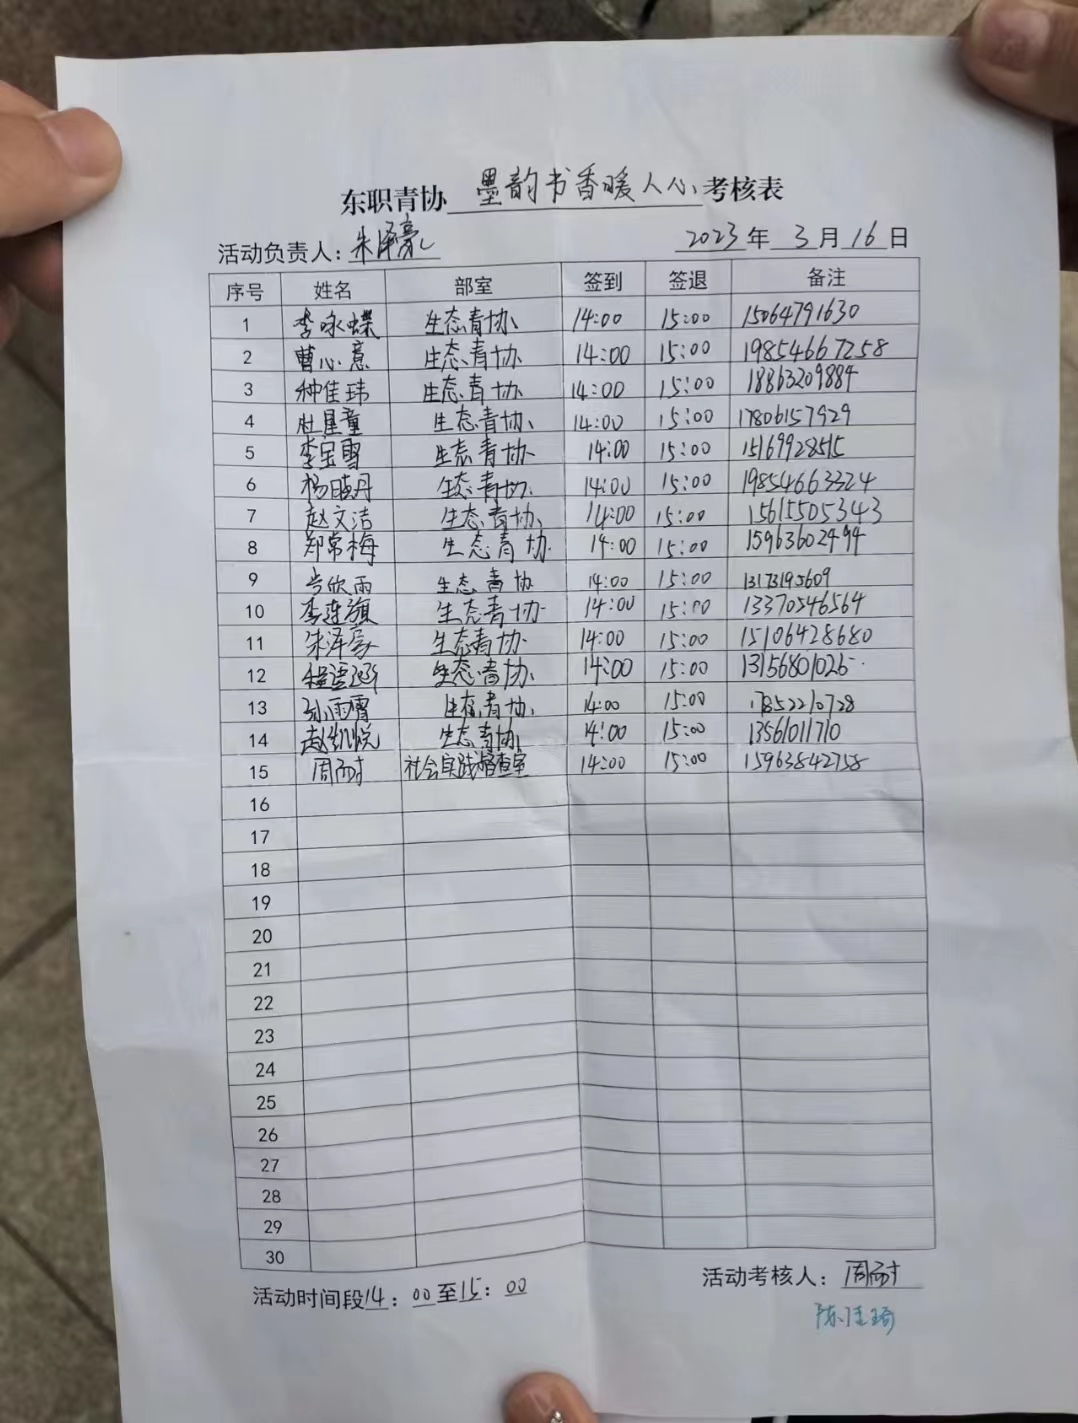 东职青协 墨韵书香暖人心 考核表
活动负责人：朱泽豪 2023年 3月16日
序号 姓名 部室 签到 签退 备注
1 李咏蝶 生态青协 14:00 15:00 15064791630
2 曹心意 生态青协 14:00 15:00 19854667258
3 种佳玮 生态青协 14:00 15:00 18863209884
4 杜星童 生态青协 14:00 15:00 17806157929
5 李宝雪 生态青协 14:00 15:00 15169928515
6 杨晓丹 生态青协 14:00 15:00 19854663324
7 赵文洁 生态青协 14:00 15:00 15615505343
8 郑常梅 生态青协 14:00 15:00 15963602494
9 欣雨 生态青协 14:00 15:00 13173195609
10 李连旗 生态青协 14:00 15:00 13370546564
11 朱泽豪 生态青协 14:00 15:00 15106428680
12 程语涵 生态青协 14:00 15:00 13156801026
13 孙雨霄 生态青协 14:00 15:00 17852210728
14 赵凯悦 生态青协 14:00 15:00 13561011710
15 周耐 社会实践督查室 14:00 15:00 15963842758
16
17
18
19
20
21
22
23
24
25
26
27
28
29
30
活动时间段14：00至15：00 活动考核人：周耐
陈佳琦